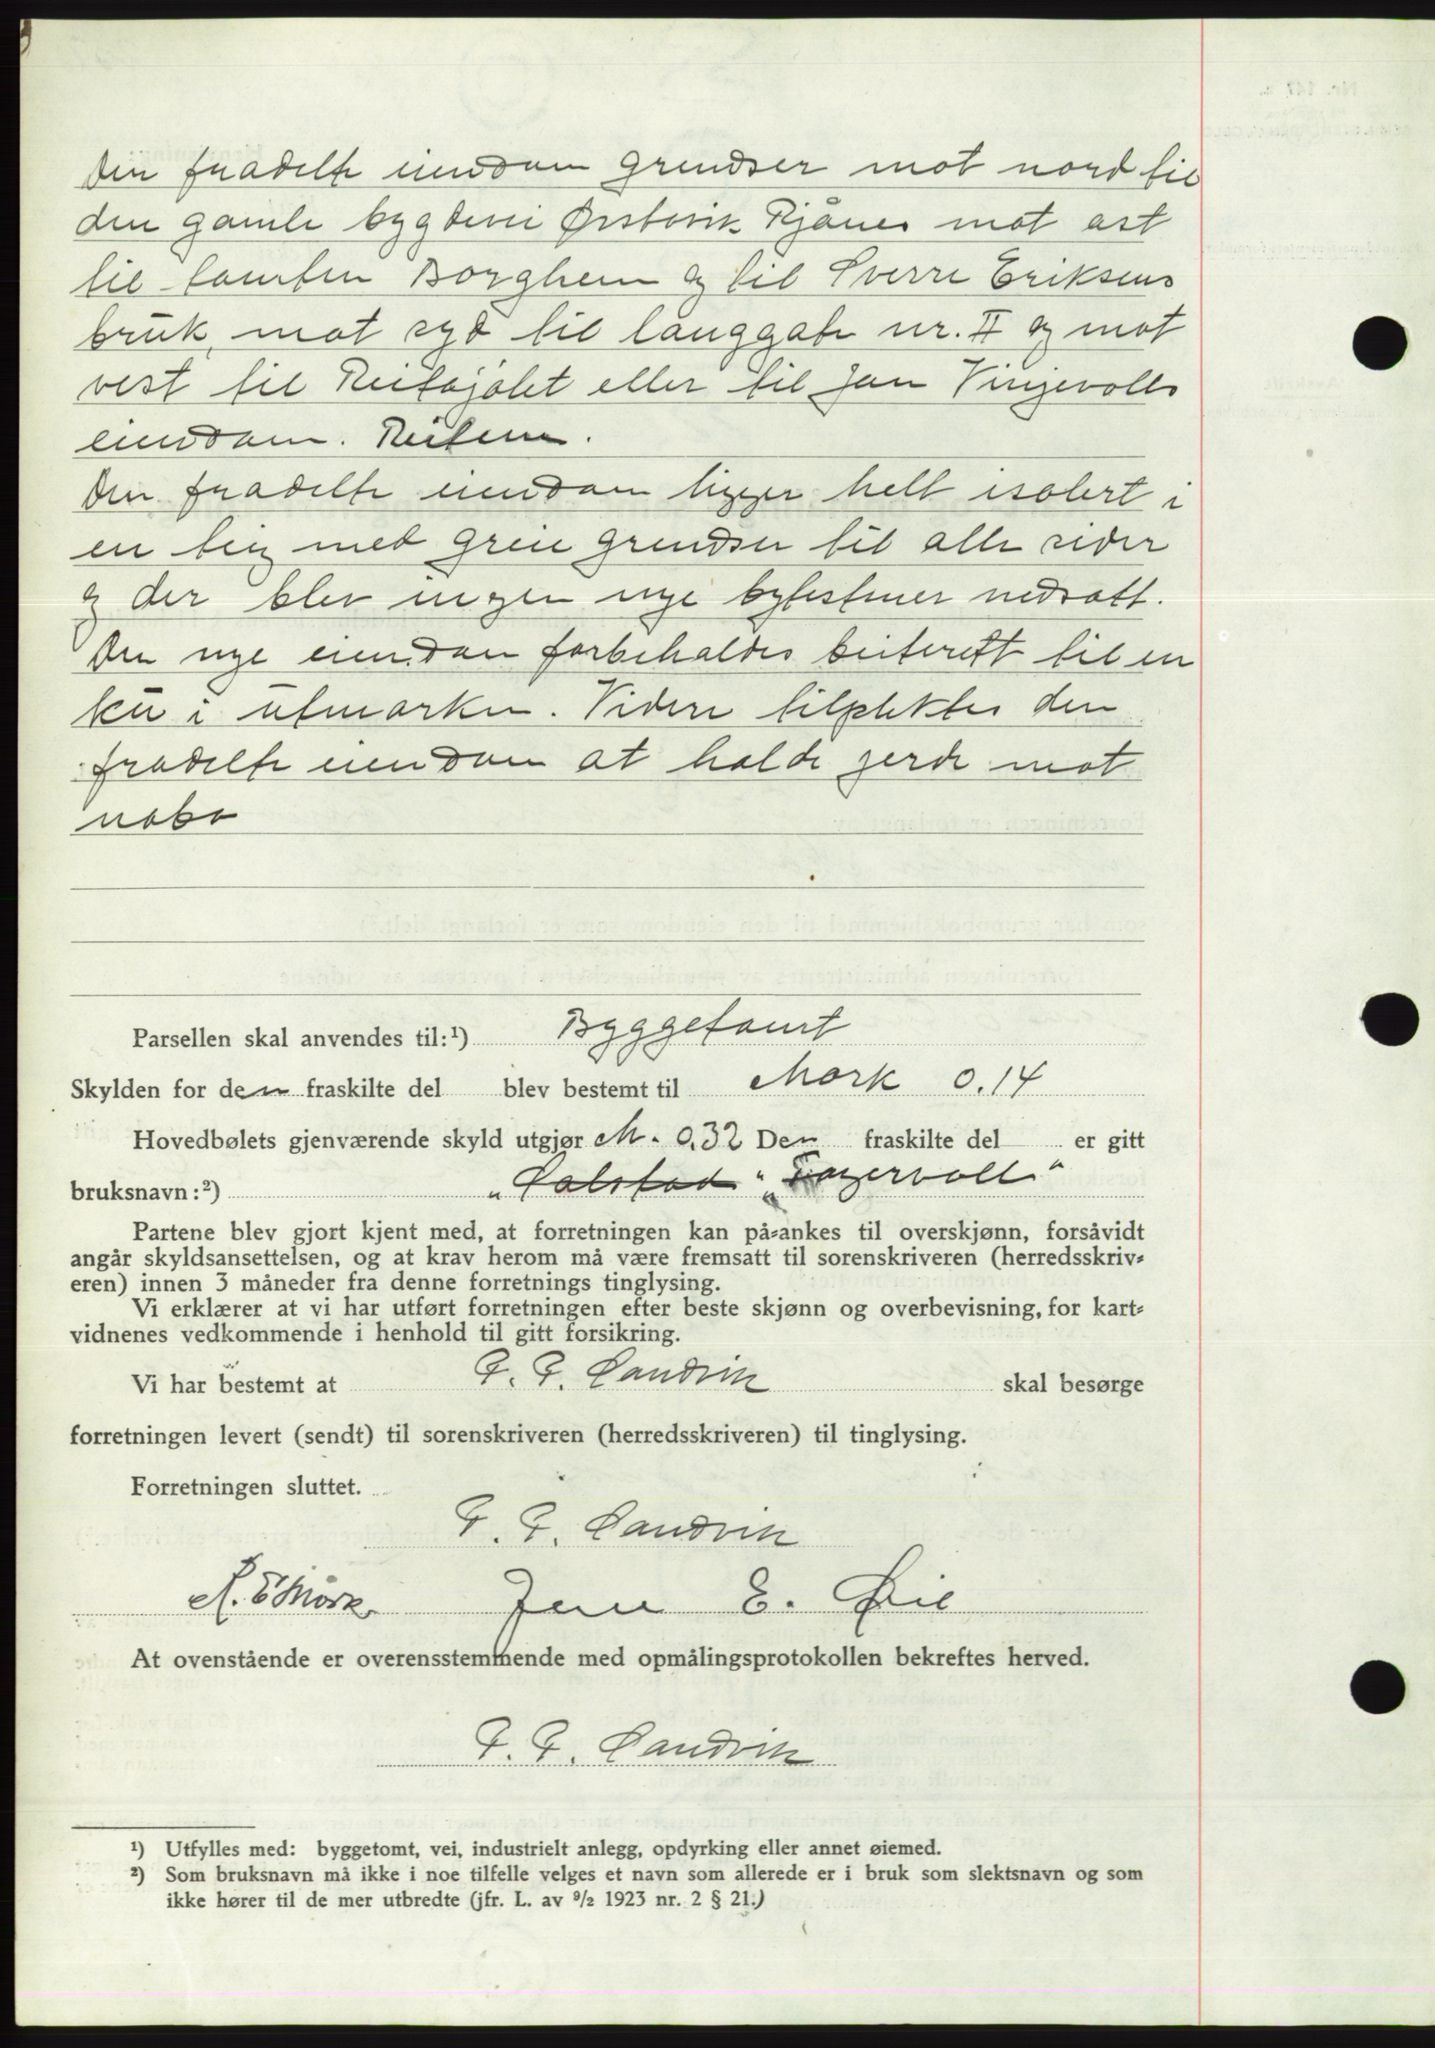 Den fradelte eiendom grendser mot nord til
den gamle bygdevei Ørstavik Rjånes mot øst
til tomten Borghem og til Sverre Eriksens
bruk, mot syd til langgate nr. II og mot
vest til eller til Jan Vinjevolls
eiendom.
Den fradelte eiendom ligger helt isolert i
en teig med greie grendser til alle sider
og der blev ingen nye bytestener nedsatt.
Den nye eiendom forbeholdes beiterett til en
ku i utmarken. Videre tilpliktes den
fradelte eiendom at holde gjerde mot
nabo
Parsellen skal anvendes til:¹) Byggetomt
Skylden for den fraskilte del blev bestemt til Mark 0.14
Hovedbølets gjenværende skyld utgjør M. 0,32 Den fraskilte del er gitt
bruksnavn:²) "Solstad" "Fagervoll"
Partene blev gjort kjent med, at forretningen kan på-ankes til overskjønn, forsåvidt
angår skyldsansettelsen, og at krav herom må være fremsatt til sorenskriveren (herredsskriv-
eren) innen 3 måneder fra denne forretnings tinglysing.
Vi erklærer at vi har utført forretningen efter beste skjønn og overbevisning, for kart-
vidnenes vedkommende i henhold til gitt forsikring.
Vi har bestemt at Sandvik skal besørge
forretningen levert (sendt) til sorenskriveren (herredsskriveren) til tinglysing.
Forretningen sluttet.
Sandvik
Jens E.
At ovenstående er overensstemmende med opmålingsprotokollen bekreftes herved.
Sandvik
¹) Utfylles med: byggetomt, vei, industrielt anlegg, opdyrking eller annet øiemed.
²) Som bruksnavn må ikke i noe tilfelle velges et navn som allerede er i bruk som slektsnavn og som
ikke hører til de mer utbredte (jfr. L. av 9/2 1923 nr. 2 § 21.)